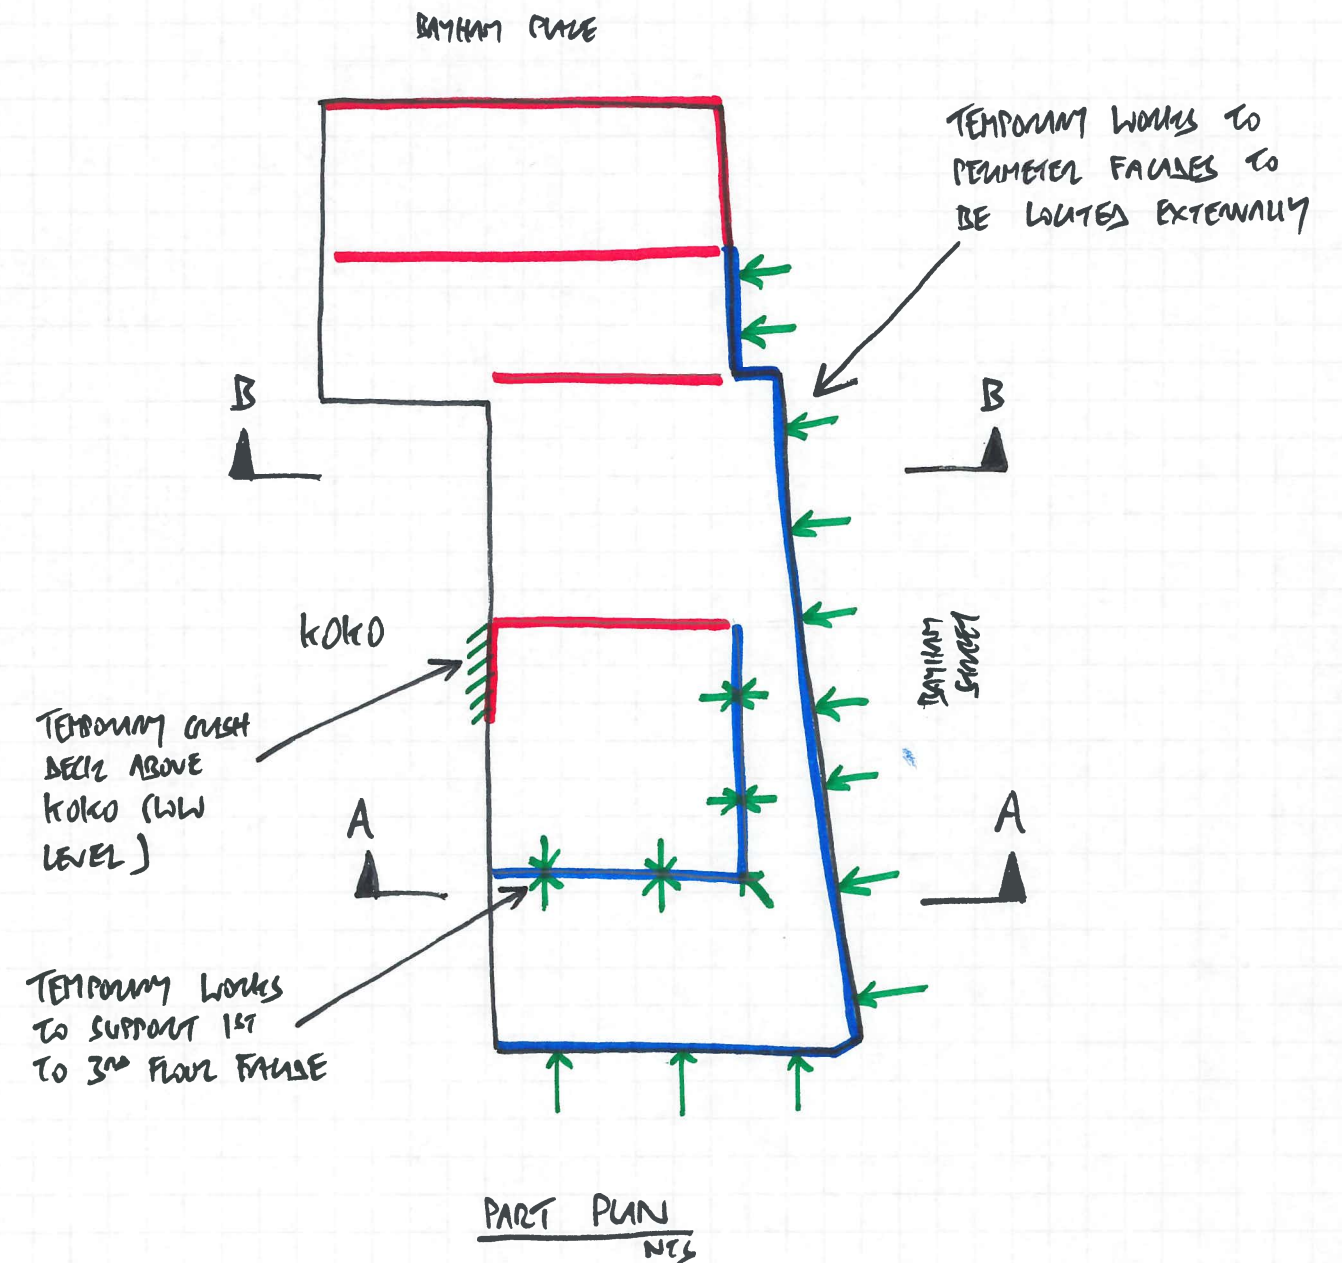 BAYHAM PLACE
TEMPORARY WORKS TO
PERIMETER FACADES TO
BE LOCATED EXTERNALLY
B
B
KOKO
BAYHAM
STREET
TEMPORARY CRASH
DECK ABOVE
KOKO (LOW
LEVEL)
A
A
TEMPORARY WORKS
TO SUPPORT 1ST
TO 3RD FLOOR FACADE
PART PLAN
NTS